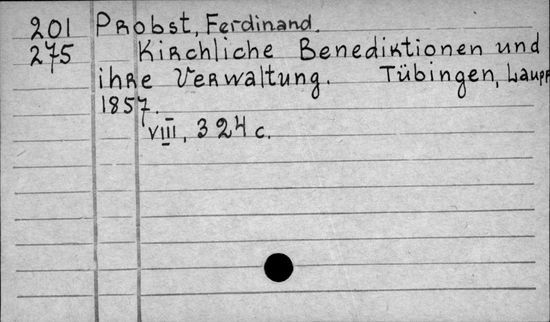 201 Probst, Ferdinand.
275 Kirchliche Benediktionen und
ihre Verwaltung. Tübingen, Laupp
1857.
VIII, 324 c.